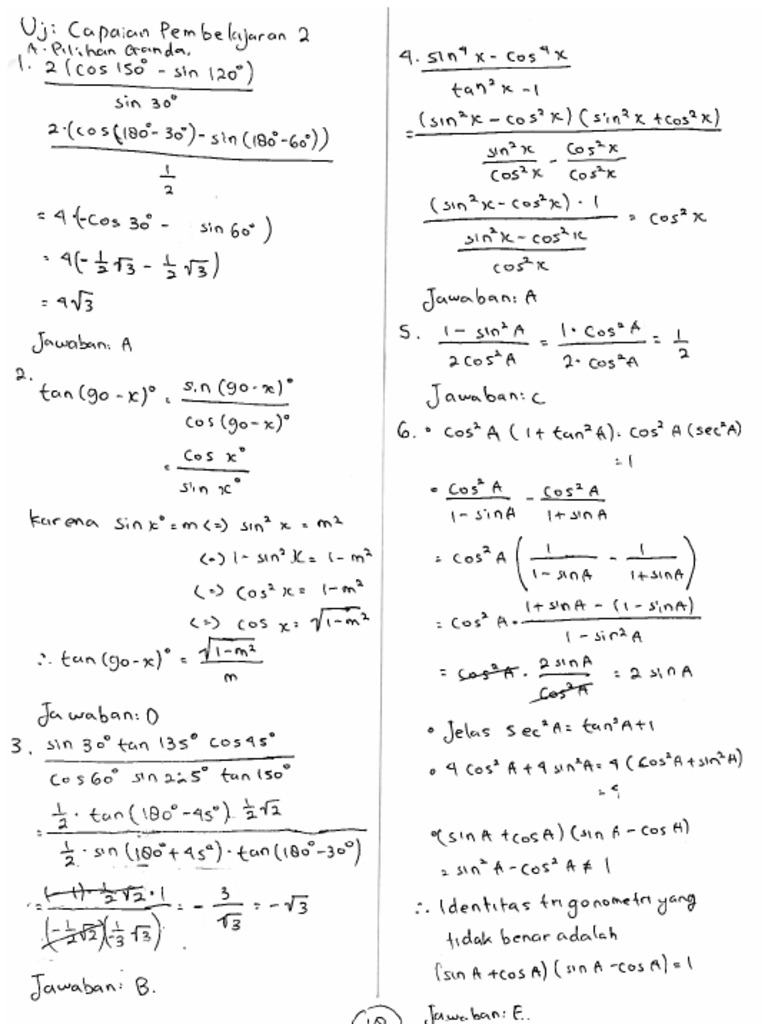 Uji Capaian Pembelajaran 2
A. Pilihan Ganda.
1. 2 (cos 150° - sin 120°)
sin 30°
2·(cos(180°-30°)-sin(180°-60°))
1
2
= 4(-cos 30° - sin 60°)
= 4(-1/2 √3 - 1/2 √3)
= 4√3
Jawaban: A
2.
tan (90-x)° = sin (90-x)°
cos (90-x)°
= cos x°
sin x°
Karena sin x° = m <=> sin² x = m²
<=> 1 - sin² x = 1 - m²
<=> cos² x = 1 - m²
<=> cos x = √1-m²
∴ tan (90-x)° = √1-m²
m
Jawaban: D
3. sin 30° tan 135° cos 45°
cos 60° sin 225° tan 150°
= 1/2 · tan (180°-45°) · 1/2 √2
1/2 · sin (180°+45°) · tan (180°-30°)
= (-1) · 1/2 √2 · 1 = - 3 = -√3
(-1/2 √2)(-1/3 √3) √3
Jawaban: B.
4. sin⁴ x - cos⁴ x
tan² x - 1
= (sin² x - cos² x) (sin² x + cos² x)
sin² x - cos² x
cos² x cos² x
(sin² x - cos² x) · 1 = cos² x
sin² x - cos² x
cos² x
Jawaban: A
5. 1 - sin² A = 1 · cos² A = 1
2 cos² A 2 · cos² A 2
Jawaban: C
6. • cos² A (1 + tan² A) = cos² A (sec² A)
= 1
• cos² A - cos² A
1 - sin A 1 + sin A
= cos² A ( 1 - 1 )
1 - sin A 1 + sin A
= cos² A · 1 + sin A - (1 - sin A)
1 - sin² A
= cos² A · 2 sin A = 2 sin A
cos² A
• Jelas sec² A = tan² A + 1
• 4 cos² A + 4 sin² A = 4 (cos² A + sin² A)
= 4
• (sin A + cos A) (sin A - cos A)
= sin² A - cos² A ≠ 1
∴ Identitas trigonometri yang
tidak benar adalah
(sin A + cos A) (sin A - cos A) = 1
Jawaban: E.